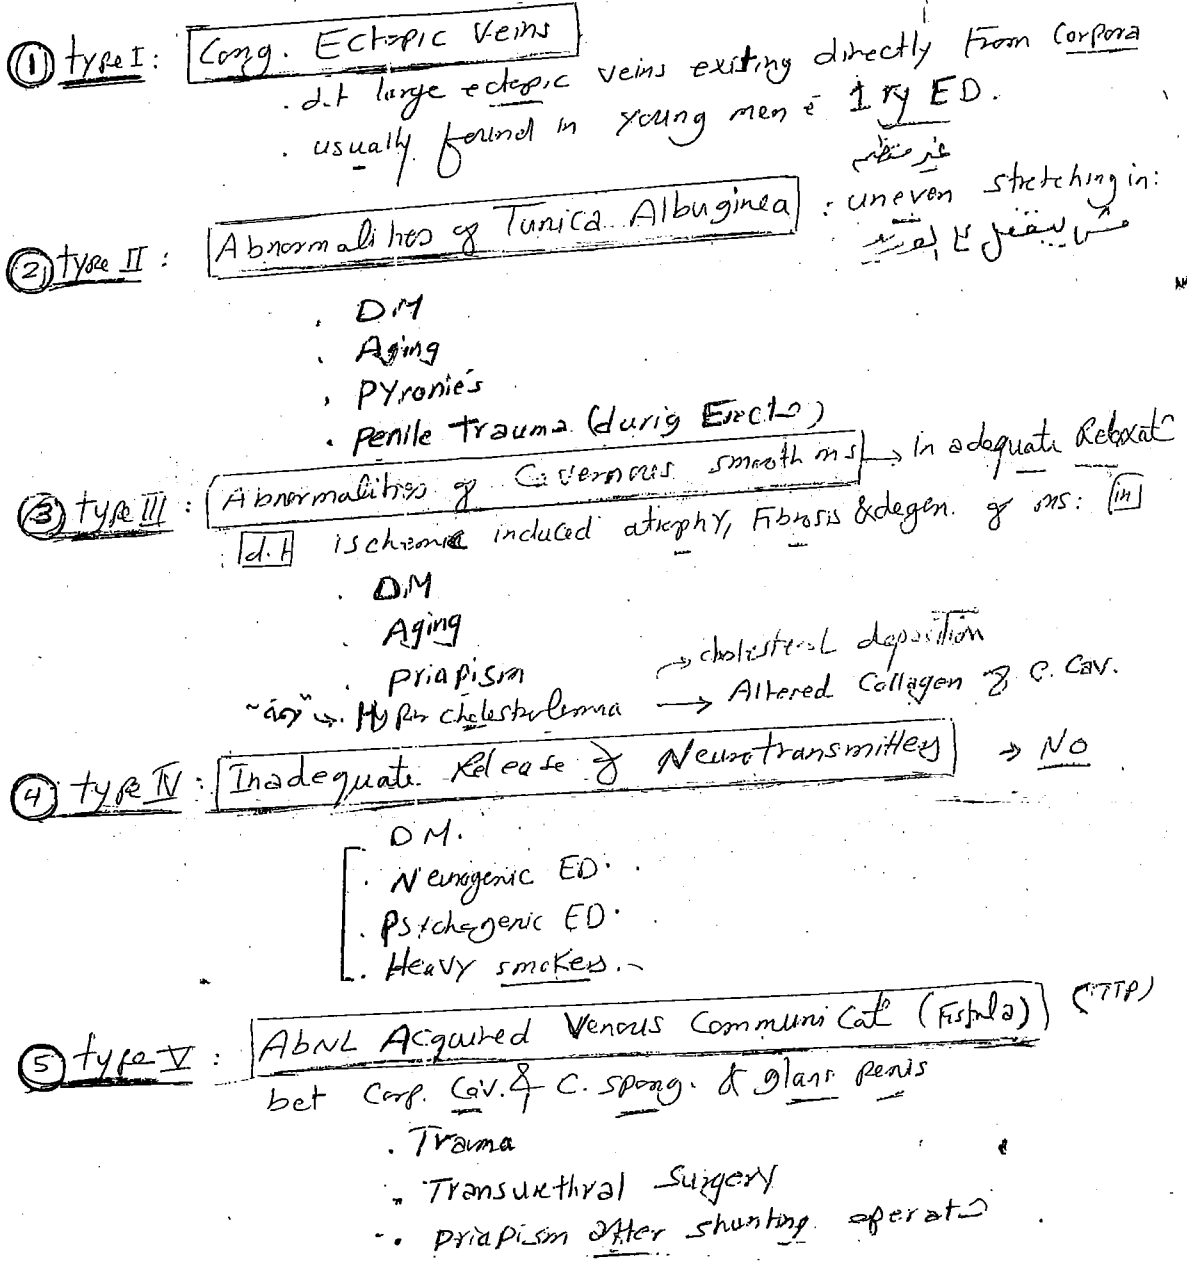 ① type I : Cong. Ectopic Veins
. d.t large ectopic veins existing directly From Corpora
. usually found in young men c̄ 1ry ED.
غير منتظم
② type II : Abnormalities of Tunica Albuginea : uneven stretching in:
مش بيقفل
. DM
. Aging
. Pyronie's
. Penile trauma (durig Erect)
③ type III : Abnormalities of Cavernous smooth ms → In adequate Relaxat
d.t ischemic induced atrophy, Fibrosis & degen. of ms: in
. DM
. Aging
. Priapism
→ cholesterol deposition
. Hyper cholesterolemia → Altered Collagen of C. Cav.
④ type IV : Inadequate Release of Neurotransmitters → NO
DM.
. Neurogenic ED.
. Pschogenic ED.
. Heavy smokers.
⑤ type V : AbNL Acquired Venous Communicat (Fistula) (TTP)
bet Corp. Cav. & C. spong. & glans penis
. Trauma
. Transurethral Surgery
. Priapism after shunting operat